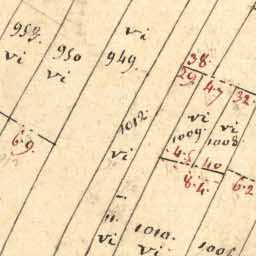 953.
vi
950
vi
vi
949.
38.
29
4.
32.
1012.
vi
vi
1009.
vi
1008.
6.9.
4.
40
8.4.
6.2
11
vi
1010.
vi